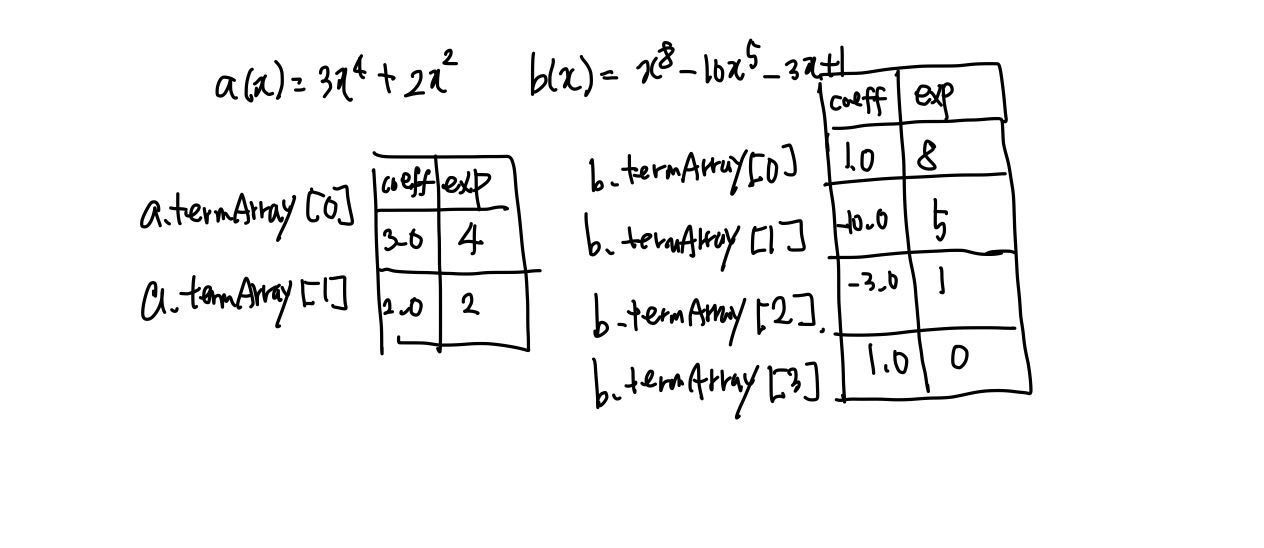 a(x) = 3x⁴ + 2x²
b(x) = x⁸ - 10x⁵ - 3x + 1
coeff exp
a.termArray[0] 3.0 4
a.termArray[1] 2.0 2
coeff exp
b.termArray[0] 1.0 8
b.termArray[1] -10.0 5
b.termArray[2] -3.0 1
b.termArray[3] 1.0 0